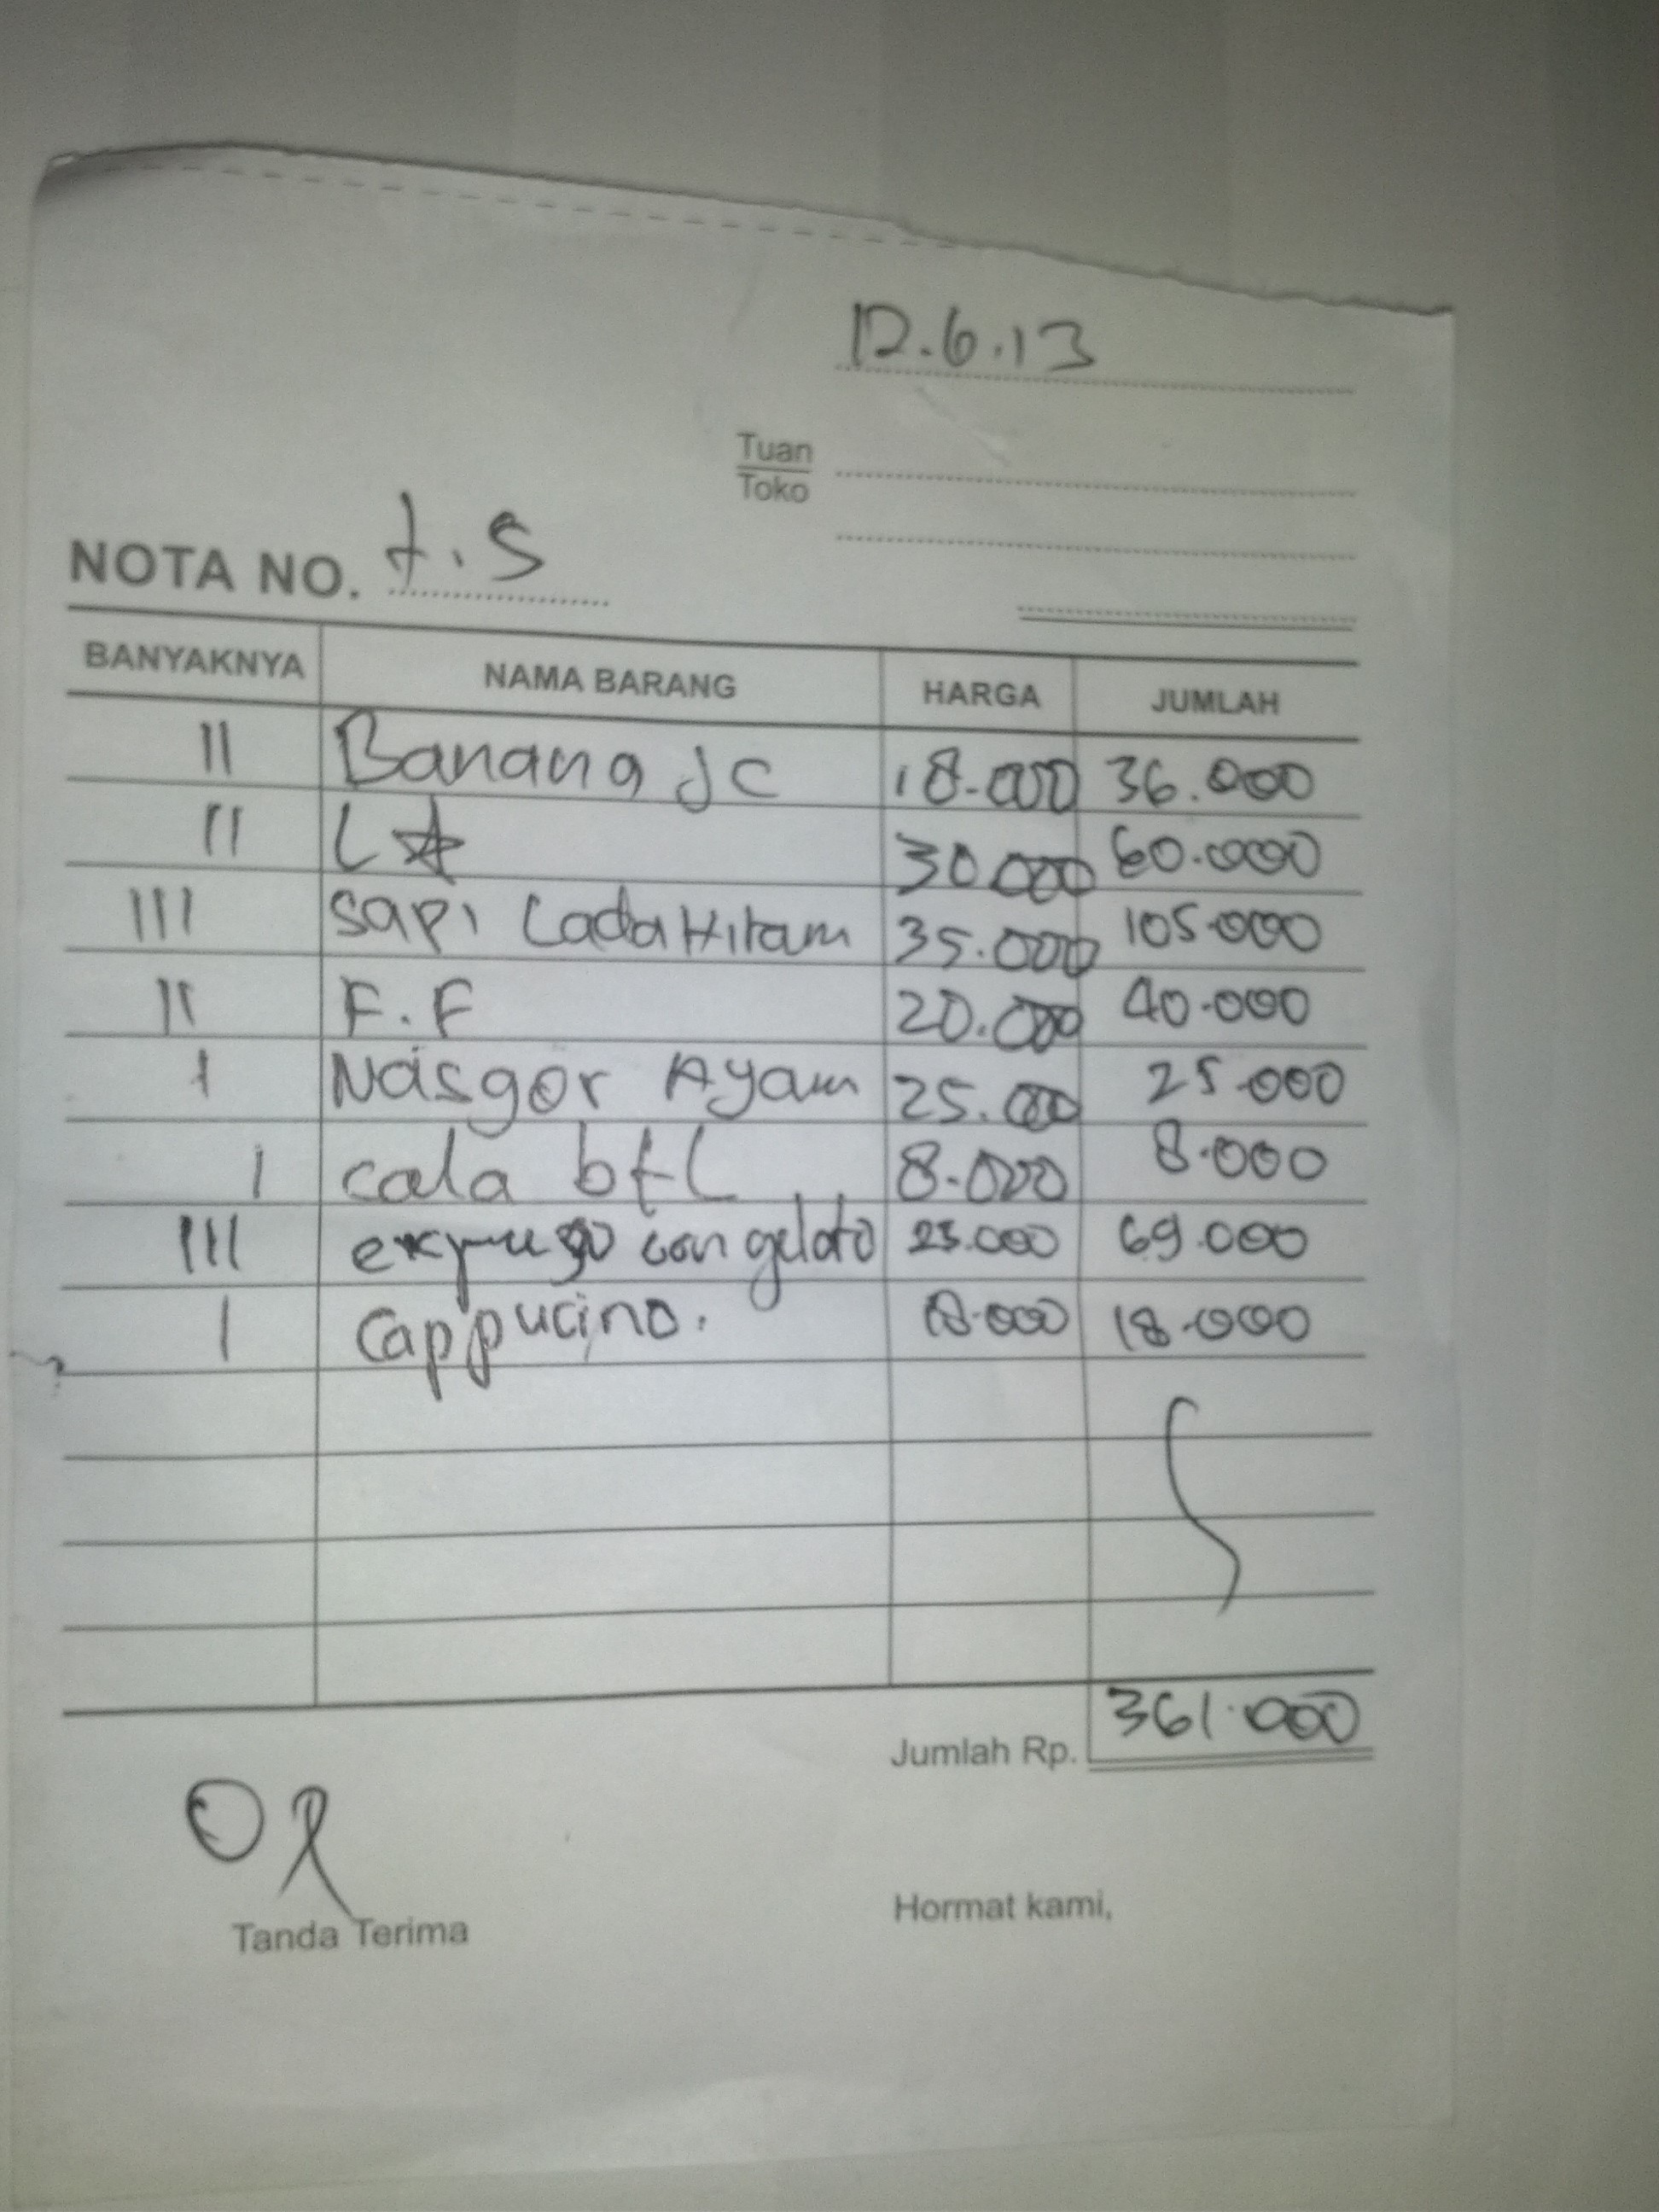 12.6.13
Tuan
Toko
NOTA NO. t.5
BANYAKNYA NAMA BARANG HARGA JUMLAH
II Banana jc 18.000 36.000
II L☆ 30.000 60.000
III Sapi Lada Hitam 35.000 105.000
II F.F 20.000 40.000
I Nasgor Ayam 25.000 25.000
I cola btl 8.000 8.000
III con gelato 23.000 69.000
I Cappucino. 18.000 18.000
Jumlah Rp. 361.000
Tanda Terima Hormat kami,